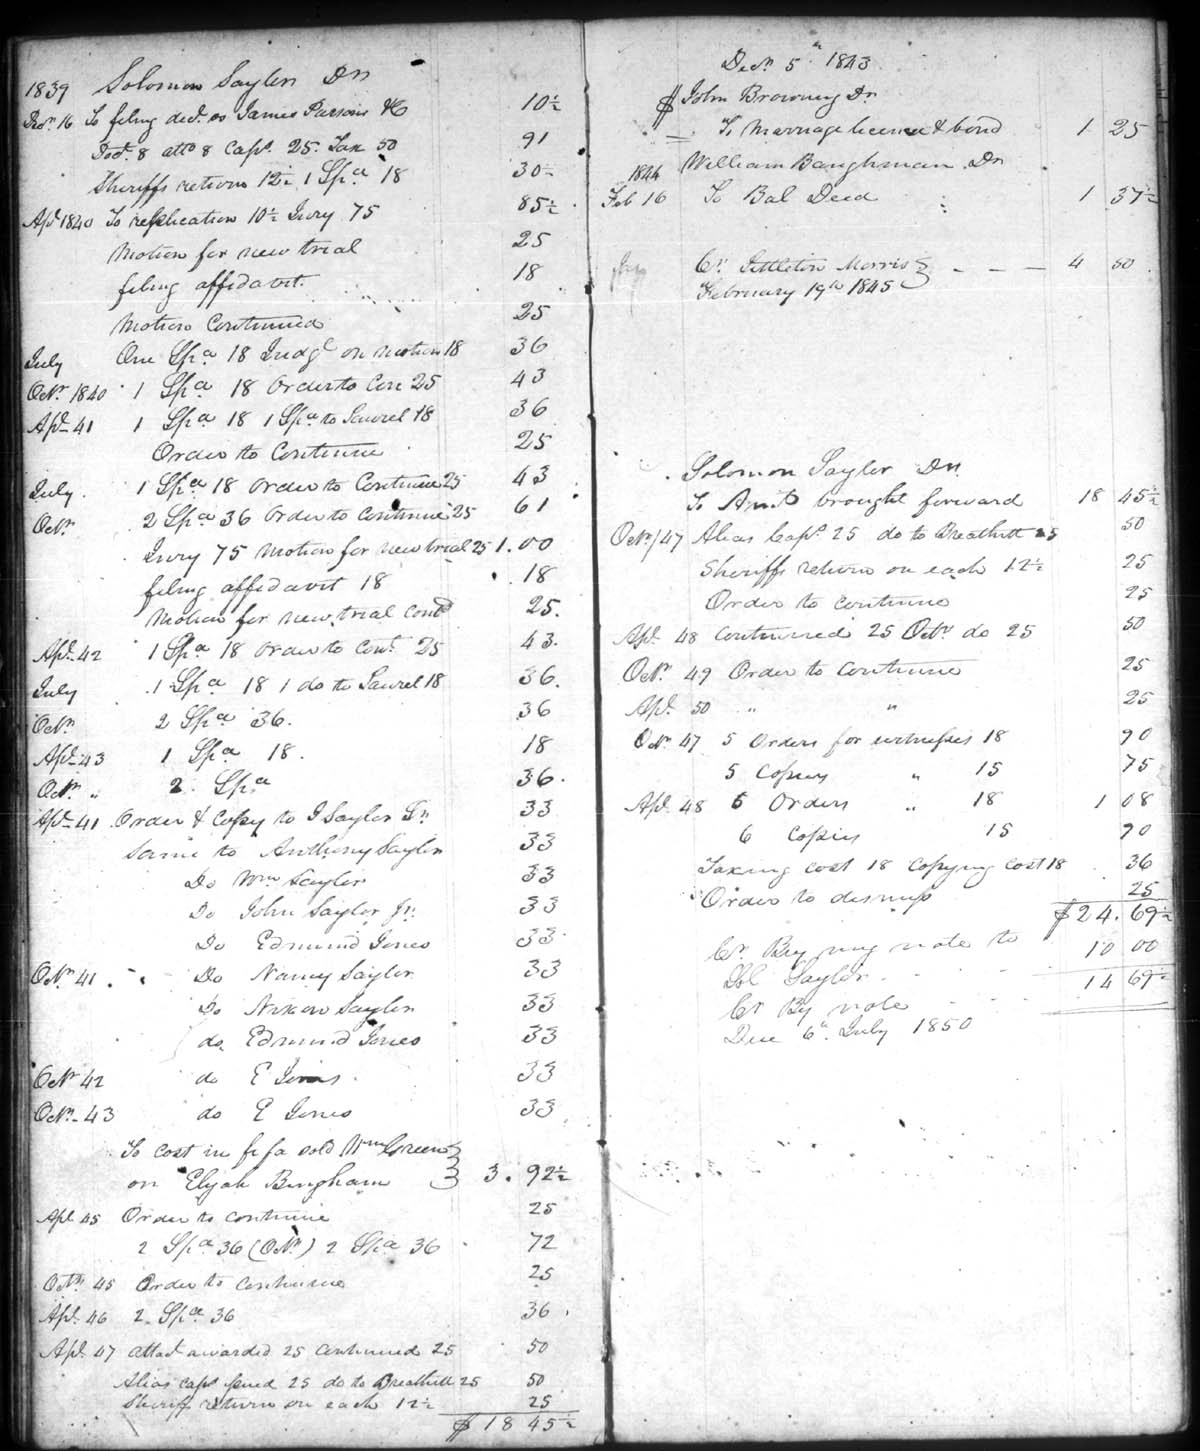 1839 Solomon Sayler Dr
Decr. 16 To filing decl. vs James Parsons &c 10½
Dod. 8 atto 8 Caps. 25. Tax 50 91
Sheriffs return 12½ 1 Spa 18 30½
Apl 1840 To replication 10½ Jury 75 85½
Motion for new trial 25
filing affidavit. 18
Motion Continued 25
July One Spa 18 Judgt on motion 18 36
Octr. 1840 1 Spa 18 Order to Con 25 43
Apl. 41 1 Spa 18 1 Spa to Laurel 18 36
Order to Continue 25
July 1 Spa 18 Order to Continue 25 43
Octr. 2 Spa 36 Order to Continue 25 61
Jury 75 Motion for new trial 25 1.00
filing affidavit 18 18
Motion for new trial contd 25.
Apl. 42 1 Spa 18 Order to Cont. 25 43.
July 1 Spa 18 1 do to Laurel 18 36.
Octr. 2 Spa 36. 36
Apl. 43 1 Spa 18. 18
Octr. " 2 Spa 36.
Apl. 41 Order & Copy to J Sayler Sr. 33
Same to Anthony Sayler 33
Do Wm Sayler 33
Do John Sayler Jr. 33
Do Edmund Jones 33
Octr. 41. Do Nancy Sayler 33
Do Nixon Sayler 33
do. Edmund Jones 33
Octr 42 do E Jones 33
Octr. 43 do E Jones 33
To cost in fi fa sold Wm Green }
on Elijah Bingham } 3. 92½
Apl 45 Order to continue 25
2 Spa 36 (Octr.) 2 Spa 36 72
Octr. 45 Order to continue 25
Apl. 46 2 Spa 36 36.
Apl. 47 attat. awarded 25 Continued 25 50
Alias caps. issued 25 do to Breathitt 25 50
Sheriff return on each 12½ 25
$ 18 45½
Decr. 5th 1843
$ John Browney Dr.
To Marriage licence & bond 1 25
1844 William Baughman Dr
Feb 16 To Bal Deed 1 37½
Cr. Littleton Morris } - - - 4 50
February 19th 1845 }
Solomon Sayler Dr.
To Amt. brought forward 18 45½
Octr/47 Alias Caps. 25 do to Breathitt 25 50
Sheriffs return on each 12½ 25
Order to continue 25
Apl. 48 Continued 25 Octr. do 25 50
Octr. 49 Order to continue 25
Apl. 50 " " 25
Octr. 47 5 Orders for witnesses 18 90
5 Copies " 15 75
Apl. 48 6 Orders " 18 1 08
6 Copies 15 90
Taxing cost 18 Copying cost 18 36
Order to dismiss 25
$24.69½
Cr. By my note to 10 00
Sol Sayler 14 69½
Cr By note
Due 6th July 1850